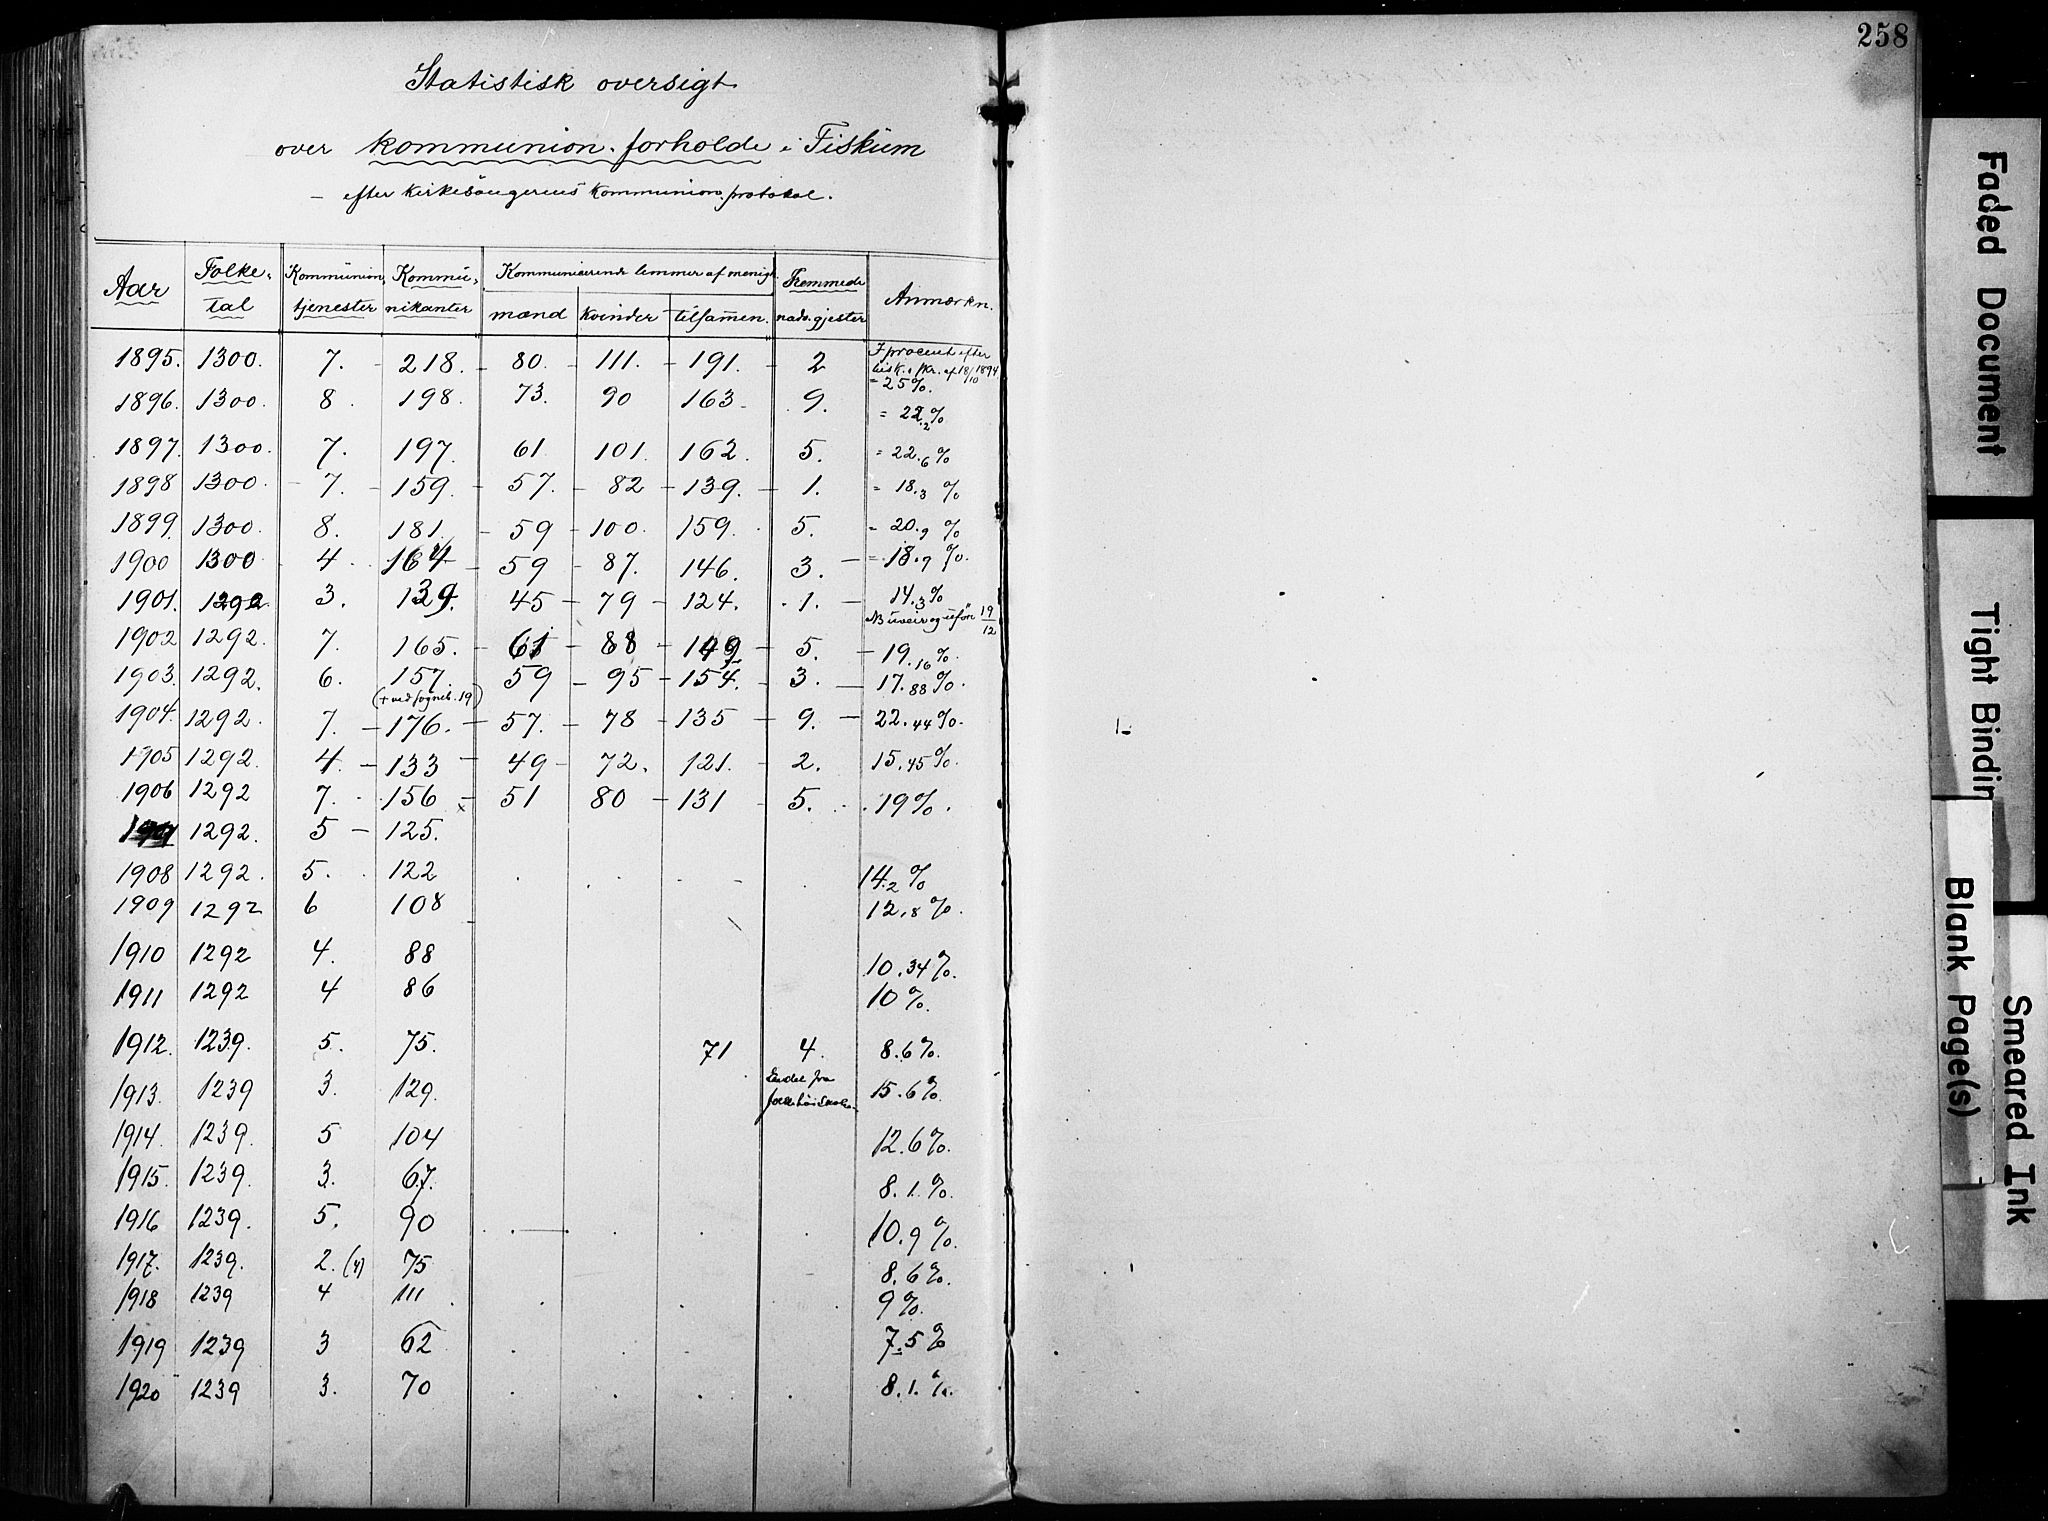 258
Statistisk oversigt
over kommunion-forholde i Fiskum
- efter kirkesangerens kommunion protokol.
Aar Folke-tal Kommunion-tjenester Kommu-nikanter Kommunicerende lemmer af menigh. Fremmede nadv. gjester Anmærkn.
mænd kvinder tilsamen.
1895. 1300. 7. - 218. - 80. - 111. - 191. - 2 I procent efter
bisk. skr. af 18/10 1894
= 25%.
1896. 1300. 8. 198. 73. 90 163. 9. = 22.2%
1897. 1300. 7. 197. 61 101. 162. 5. = 22.6%
1898 1300. - 7. - 159. - 57. - 82 - 139. - 1. = 18.3 %
1899. 1300. 8. 181. - 59 - 100. 159. 5. = 20.9 %
1900 1300 4 164 - 59 - 87. 146. 3. - = 18.9 %.
1901. 1292. 3. 139. 45 - 79 - 124. 1. - 14.3%
NB uveir og uføre 19/12
1902 1292. 7. 165. - 61 - 88 - 149 - 5. - 19.16%.
1903. 1292. 6. 157 59 - 95 - 154. - 3. - 17.88%.
(+ ved sogneb. 19)
1904. 1292. 7. - 176. - 57. - 78 - 135 - 9. - 22.44%.
1905 1292. 4. - 133 - 49 - 72. 121. - 2. 15.45%.
1906 1292 7. 156 x - 51 80 - 131 - 5. 19%.
1907 1292. 5 - 125.
1908 1292. 5. 122 14.2 %
1909 1292 6 108 12.8%.
1910 1292 4. 88 10.34%.
1911 1292 4 86 10%.
1912. 1239. 5. 75. 71 4. 8.6%.
1913. 1239 3. 129. Endel fra
folkehøiskolen. 15.6%.
1914. 1239. 5 104 12.6%.
1915. 1239. 3. 67. 8.1.%.
1916 1239. 5. 90 10.9%.
1917. 1239. 2. (4) 75 8.6%.
1918 1239 4 111 9%.
1919 1239 3 62 7.5%
1920 1239 3. 70 8.1.%.
Faded Document
Tight Bindin
Blank Page(s)
Smeared Ink